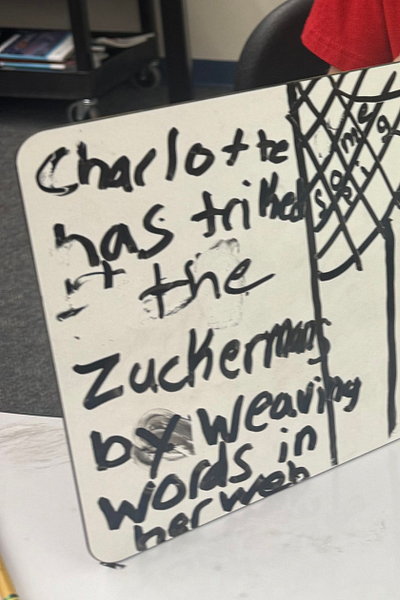 Charlotte
has triked
the
Zuckermans
by weaving
words in
her web
some